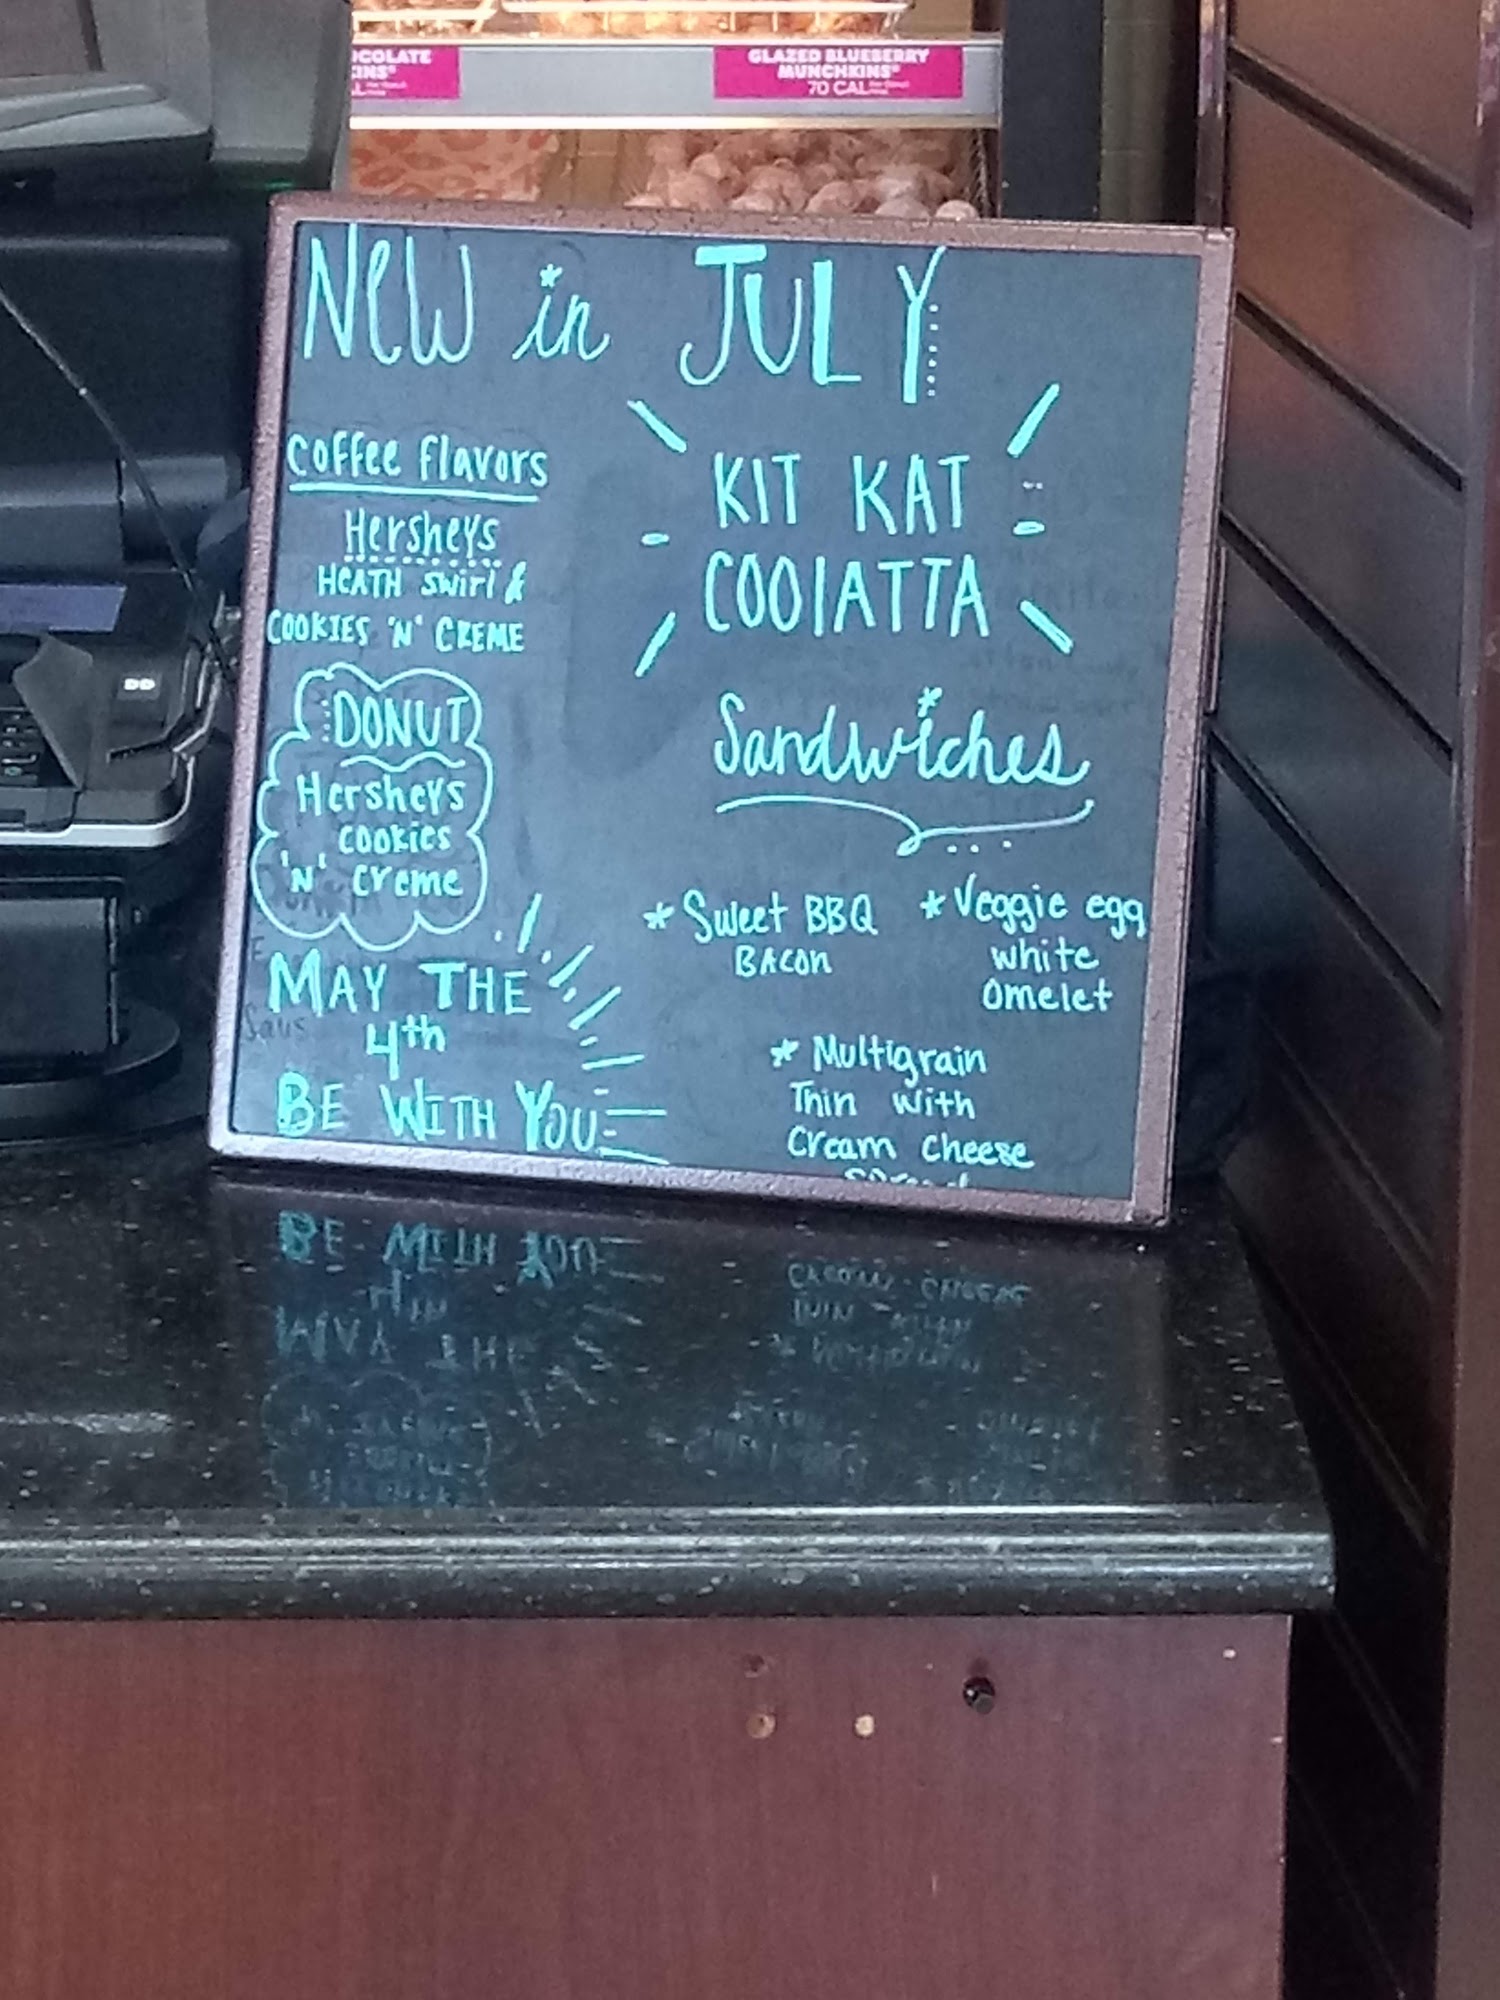 OCOLATE
KINS®
GLAZED BLUEBERRY
MUNCHKINS®
70 CAL
New in JULY
Coffee flavors
Hersheys
HEATH swirl &
COOKIES 'N' CREME
DONUT
Hersheys
cookies
'N' creme
MAY THE
4th
BE WITH YOU
KIT KAT
COOlATTA
Sandwiches
* Sweet BBQ
BACON
* Veggie egg
white
Omelet
* Multigrain
Thin with
Cream cheese
DD